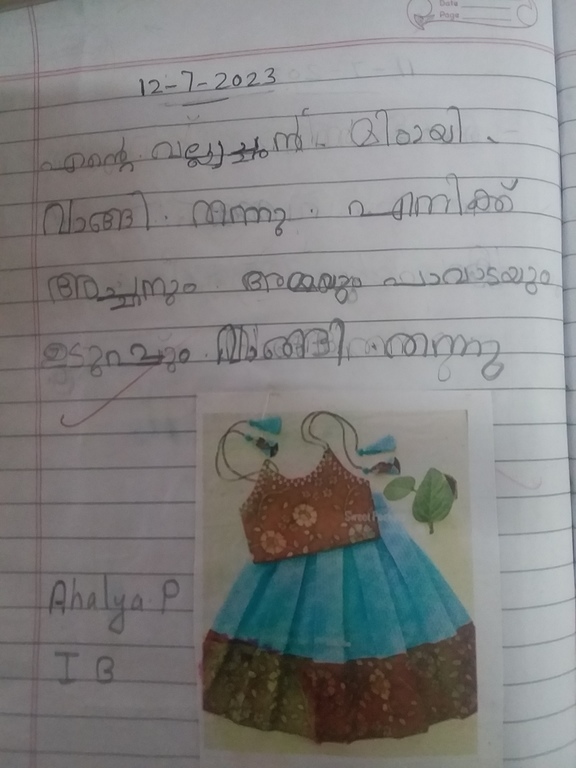 Date
Page
12-7-2023
എന്റെ വല്ല്യച്ചൻ മിഠായി
വാങ്ങി തന്നു എനിക്ക്
അച്ചനും അമ്മയും പാവാടയും
ഉടുപ്പും വാങ്ങി തന്നു
Ahalya P
I B